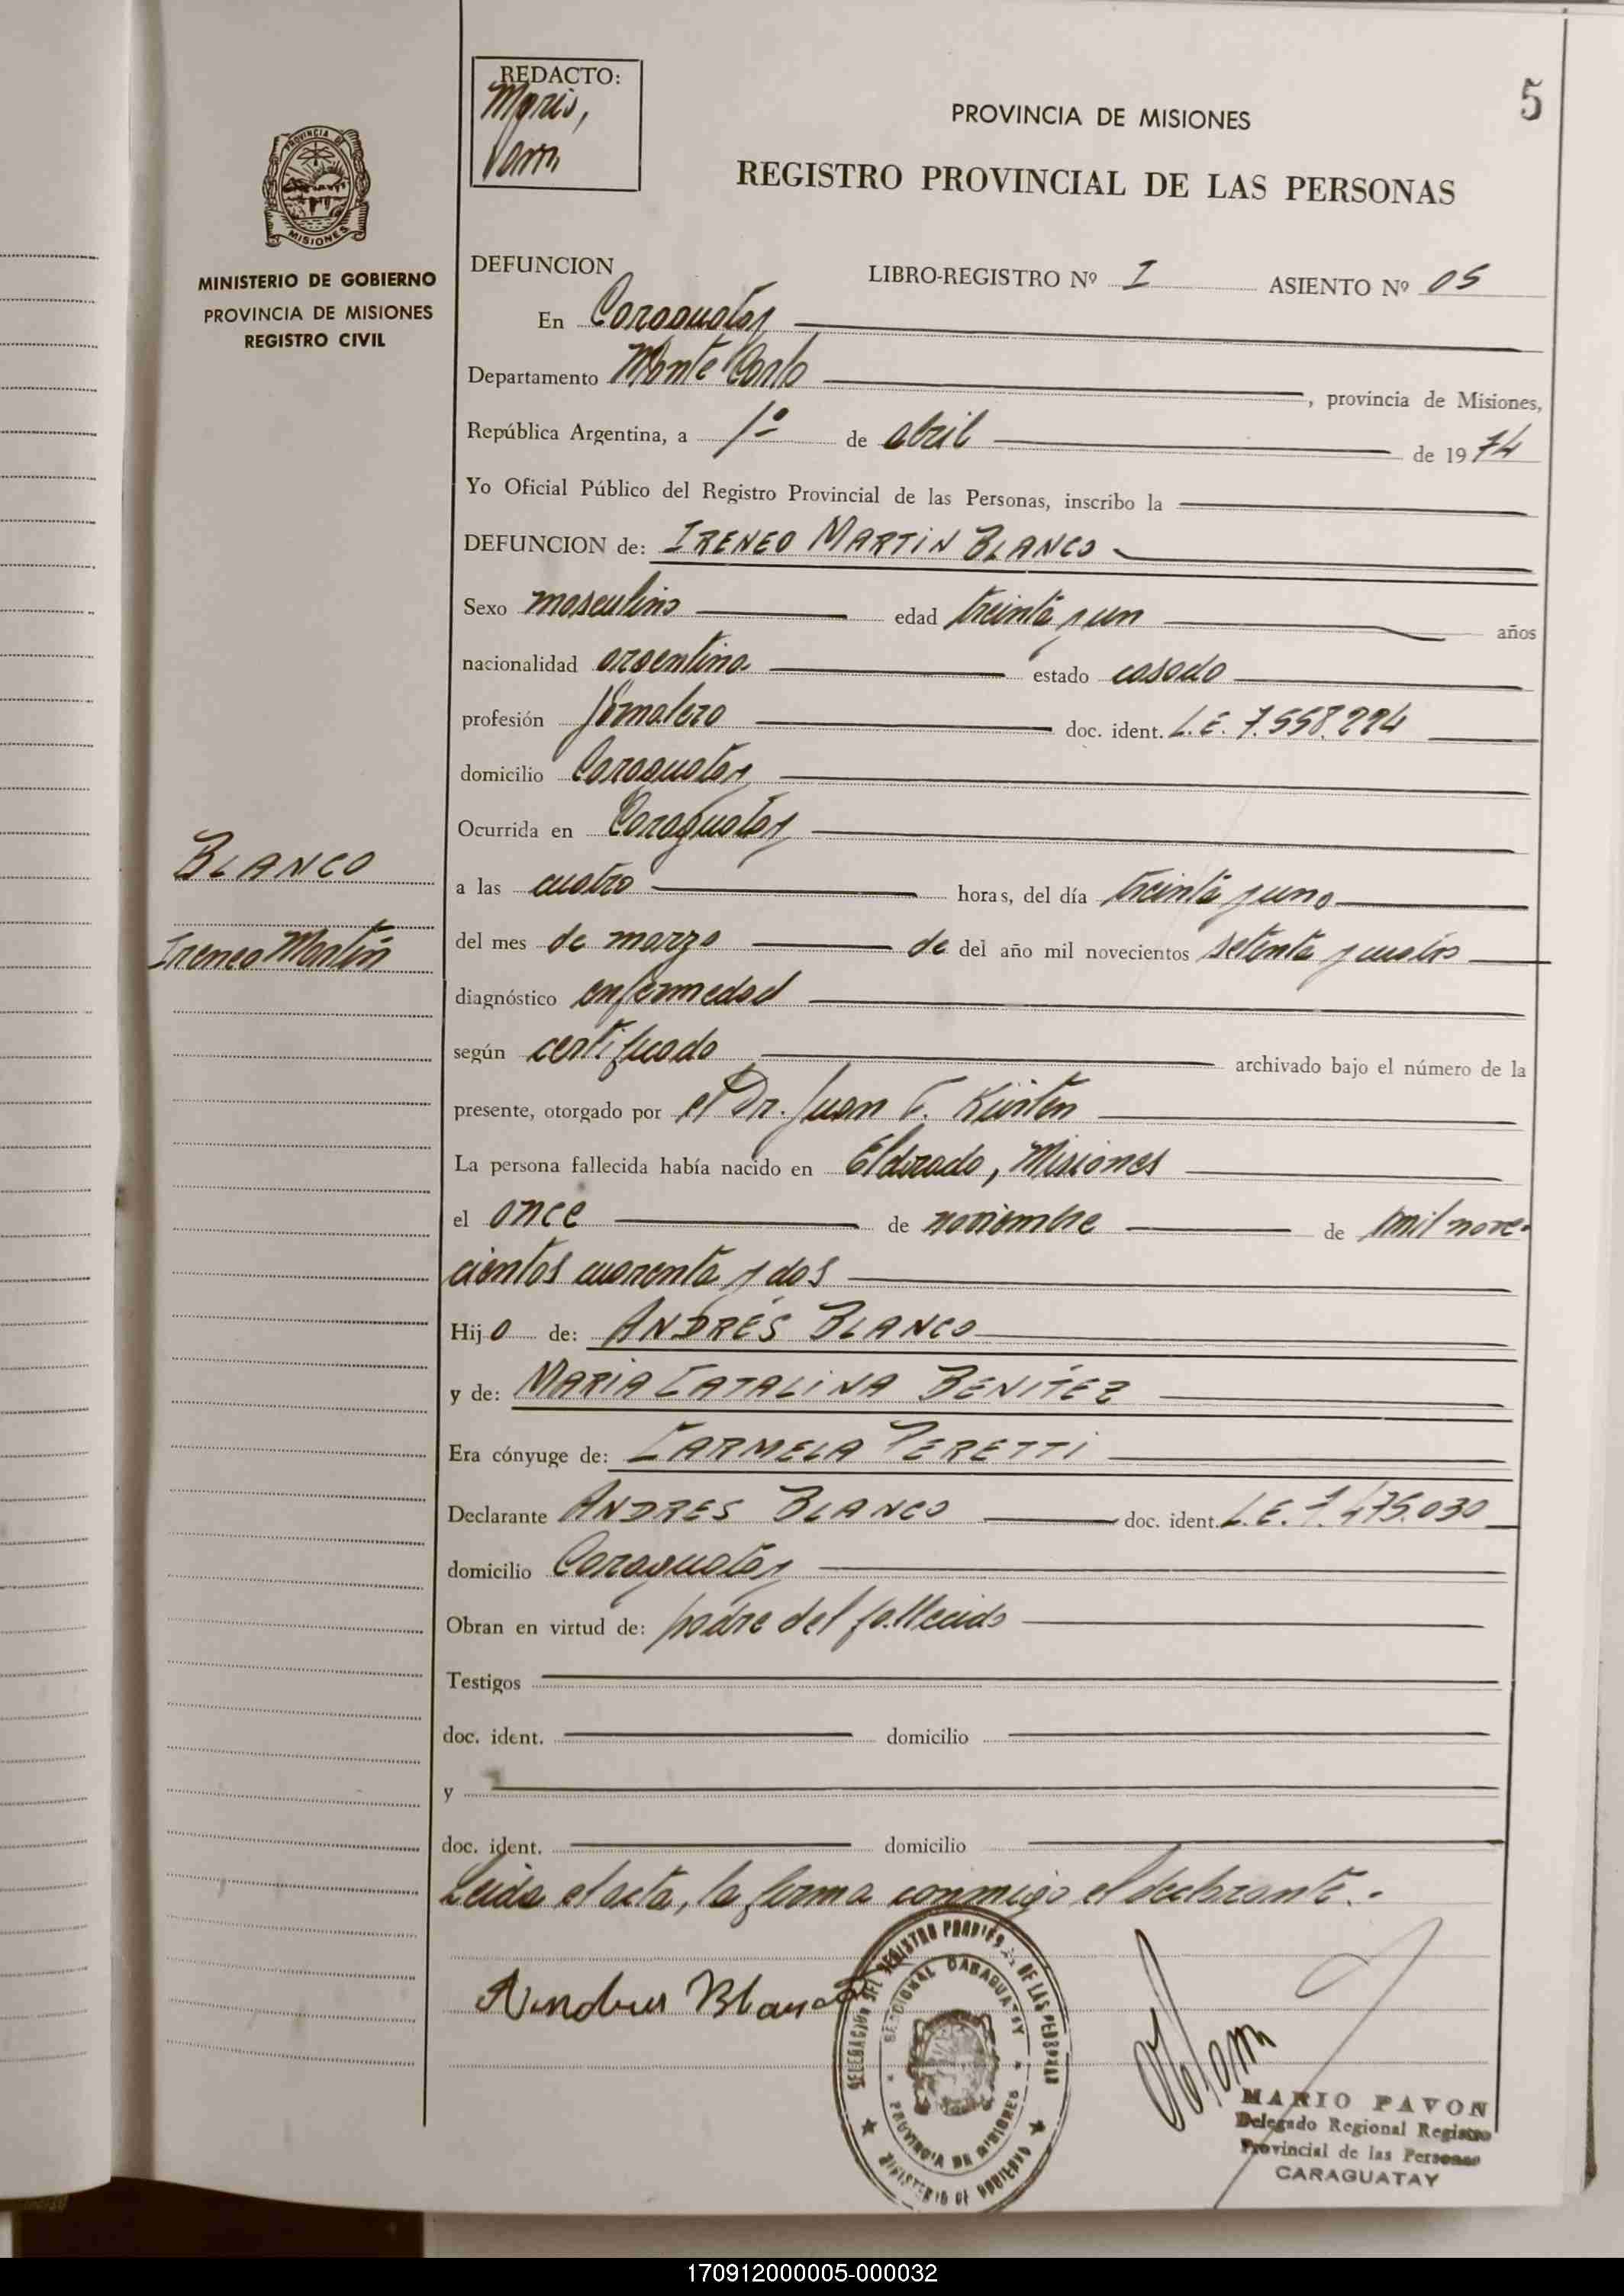 REDACTO:
5
PROVINCIA DE MISIONES
REGISTRO PROVINCIAL DE LAS PERSONAS
PROVINCIA DE
MISIONES
MINISTERIO DE GOBIERNO
PROVINCIA DE MISIONES
REGISTRO CIVIL
BLANCO
Ireneo Martín
DEFUNCION LIBRO-REGISTRO Nº I ASIENTO Nº 05
En Caraguatay
Departamento Monte Carlo, provincia de Misiones,
República Argentina, a 1º de abril de 1974
Yo Oficial Público del Registro Provincial de las Personas, inscribo la
DEFUNCION de: IRENEO MARTIN BLANCO
Sexo masculino edad treinta y un años
nacionalidad argentina estado casado
profesión jornalero doc. ident. L.E. 7.558.224
domicilio Caraguatay
Ocurrida en Caraguatay
a las cuatro horas, del día treinta y uno
del mes de marzo de del año mil novecientos setenta y cuatro
diagnóstico enfermedad
según certificado archivado bajo el número de la
presente, otorgado por el Dr. Juan C. Künten
La persona fallecida había nacido en Eldorado, Misiones
el once de noviembre de mil nove-
cientos cuarenta y dos
Hijo de: ANDRÉS BLANCO
y de: MARIA CATALINA BENÍTEZ
Era cónyuge de: CARMELA PERETTI
Declarante ANDRES BLANCO doc. ident. L.E. 7.475.030
domicilio Caraguatay
Obran en virtud de: padre del fallecido
Testigos
doc. ident. domicilio
y
doc. ident. domicilio
Leida el acta, la firma conmigo el declarante.-
Andres Blanco
DELEGACION DEL REGISTRO PROVINCIAL DE LAS PERSONAS
SECCIONAL CARAGUATAY
PROVINCIA DE MISIONES
MINISTERIO DE GOBIERNO
MARIO PAVON
Delegado Regional Registro
Provincial de las Personas
CARAGUATAY
170912000005-000032